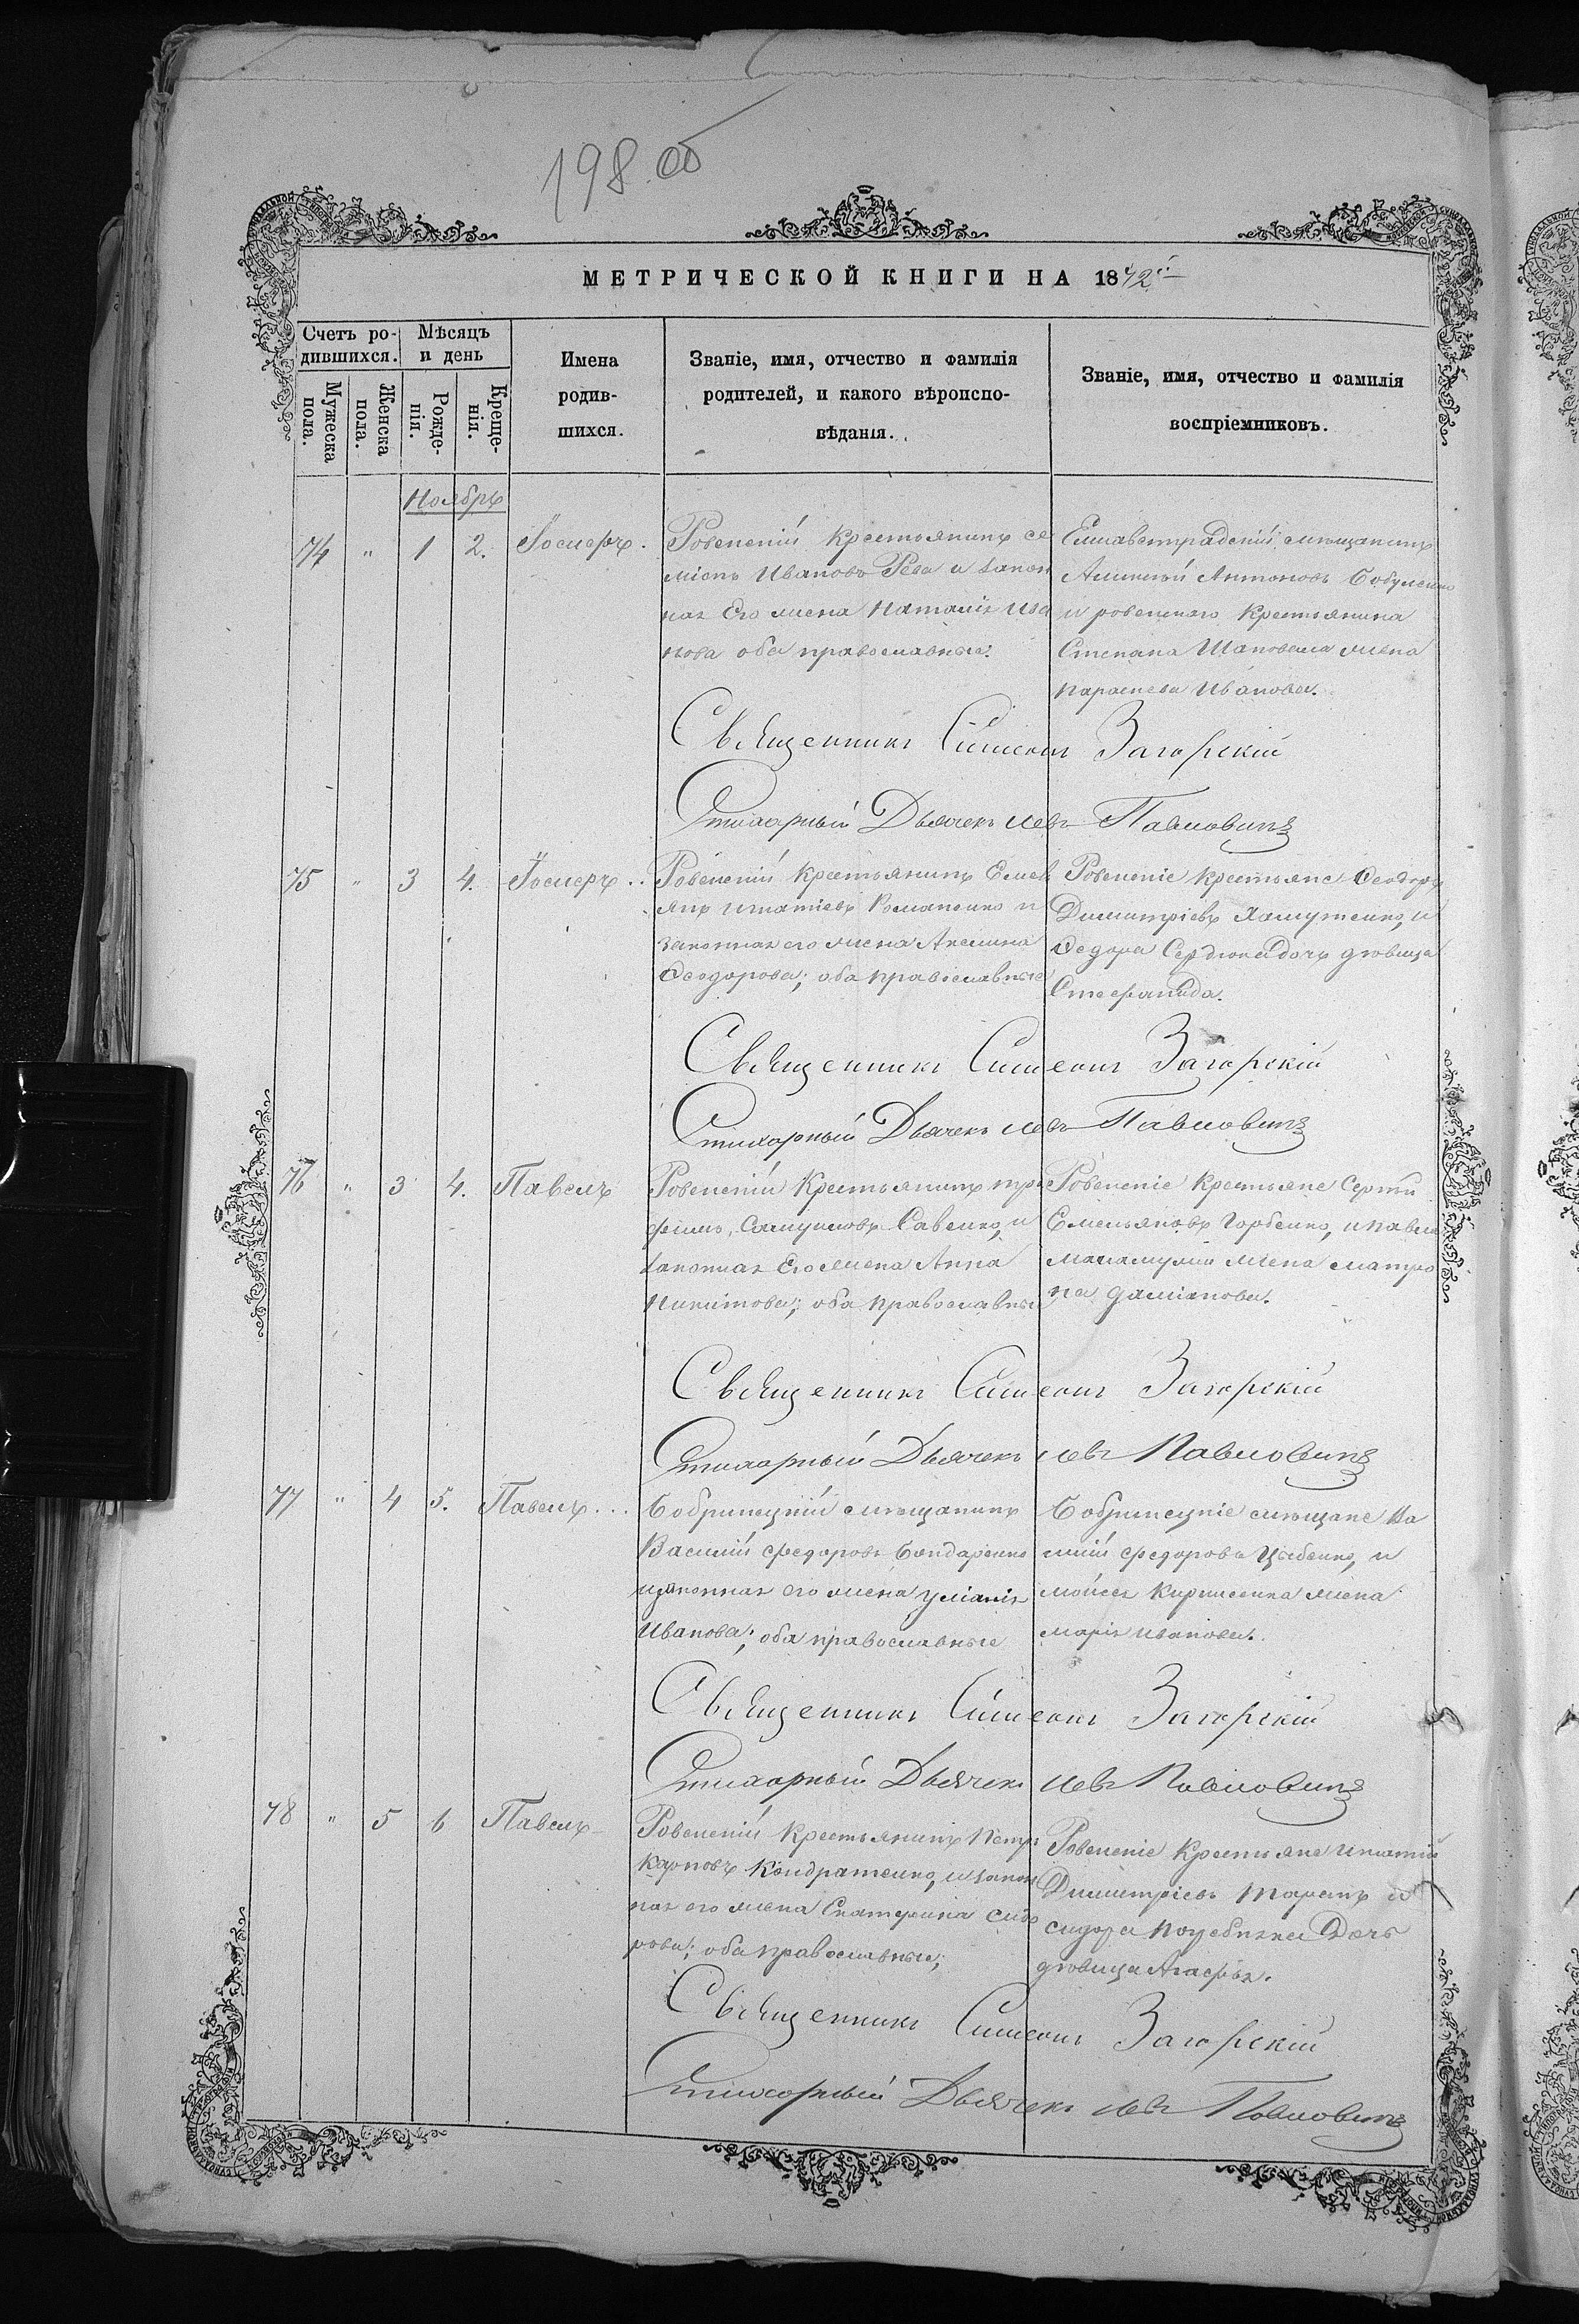 198 об
МЕТРИЧЕСКОЙ КНИГИ НА 1872й
Счетъ ро-
дившихся.
Мѣсяцъ
и день
Мужеска
пола.
Женска
пола.
Рожде-
нія.
Креще-
нія.
Имена
родив-
шихся.
Званіе, имя, отчество и фамилія
родителей, и какого вѣроиспо-
вѣданія.
Званіе, имя, отчество и фамилія
воспріемниковъ.
Ноябрь
74 " 1 2.
Ровенскій крестьянинъ Си
міонъ Ивановъ Рева и закон
ная Его жена Наталія Ива
нова оба православные.
Елисаветградскій мѣщанинъ
Антоновъ
и ровенскаго крестьянина
Степана Шаповала жена
Параскева Иванова.
Священникъ Симеонъ Загорскій
Стихарный Дьячекъ Левъ Павловичъ
75 " 3 4.
Ровенскій крестьянинъ Емел
янъ Игнатіевъ Романенко и
законная его жена Акелина
Феодорова; оба православные
Ровенскіе крестьяне Феодоръ
Димитріевъ и
Федора Сердюка дочь дѣвица
Стефанида.
Священникъ Симеонъ Загорскій
Стихарный Дьячекъ Левъ Павловичъ
76 " 3 4. Павелъ
Ровенскій крестьянинъ Тро
фимъ Самуиловъ Савенко, и
законная Его жена Анна
Никитова; оба православные
Ровенскіе крестьяне Сергій
Емельяновъ Горбенко, и Павла
жена Матро
на Даміанова.
Священникъ Симеонъ Загорскій
Стихарный Дьячекъ Левъ Павловичъ
77 " 4 5. Павелъ...
Бобринецкій мѣщанинъ
Василій Федоровъ Бондаренко
и законная его жена Уліанія
Иванова; оба православные
Бобринецкіе мѣщане Ва
силій Федоровъ Цыбенко, и
Мойсея Кириченка жена
Марія Иванова.
Священникъ Симеонъ Загорскій
Стихарный Дьячекъ Левъ Павловичъ
78 " 5 6 Павелъ
Ровенскій крестьянинъ Петръ
Карповъ Кондратенко, и закон
ная его жена Екатерина Сидо
рова; оба православные;
Ровенскіе крестьяне Игнатій
Димитріевъ Таранъ и
Сидора дочь
дѣвица Агафія.
Священникъ Симеонъ Загорскій
Стихарный Дьячекъ Левъ Павловичъ